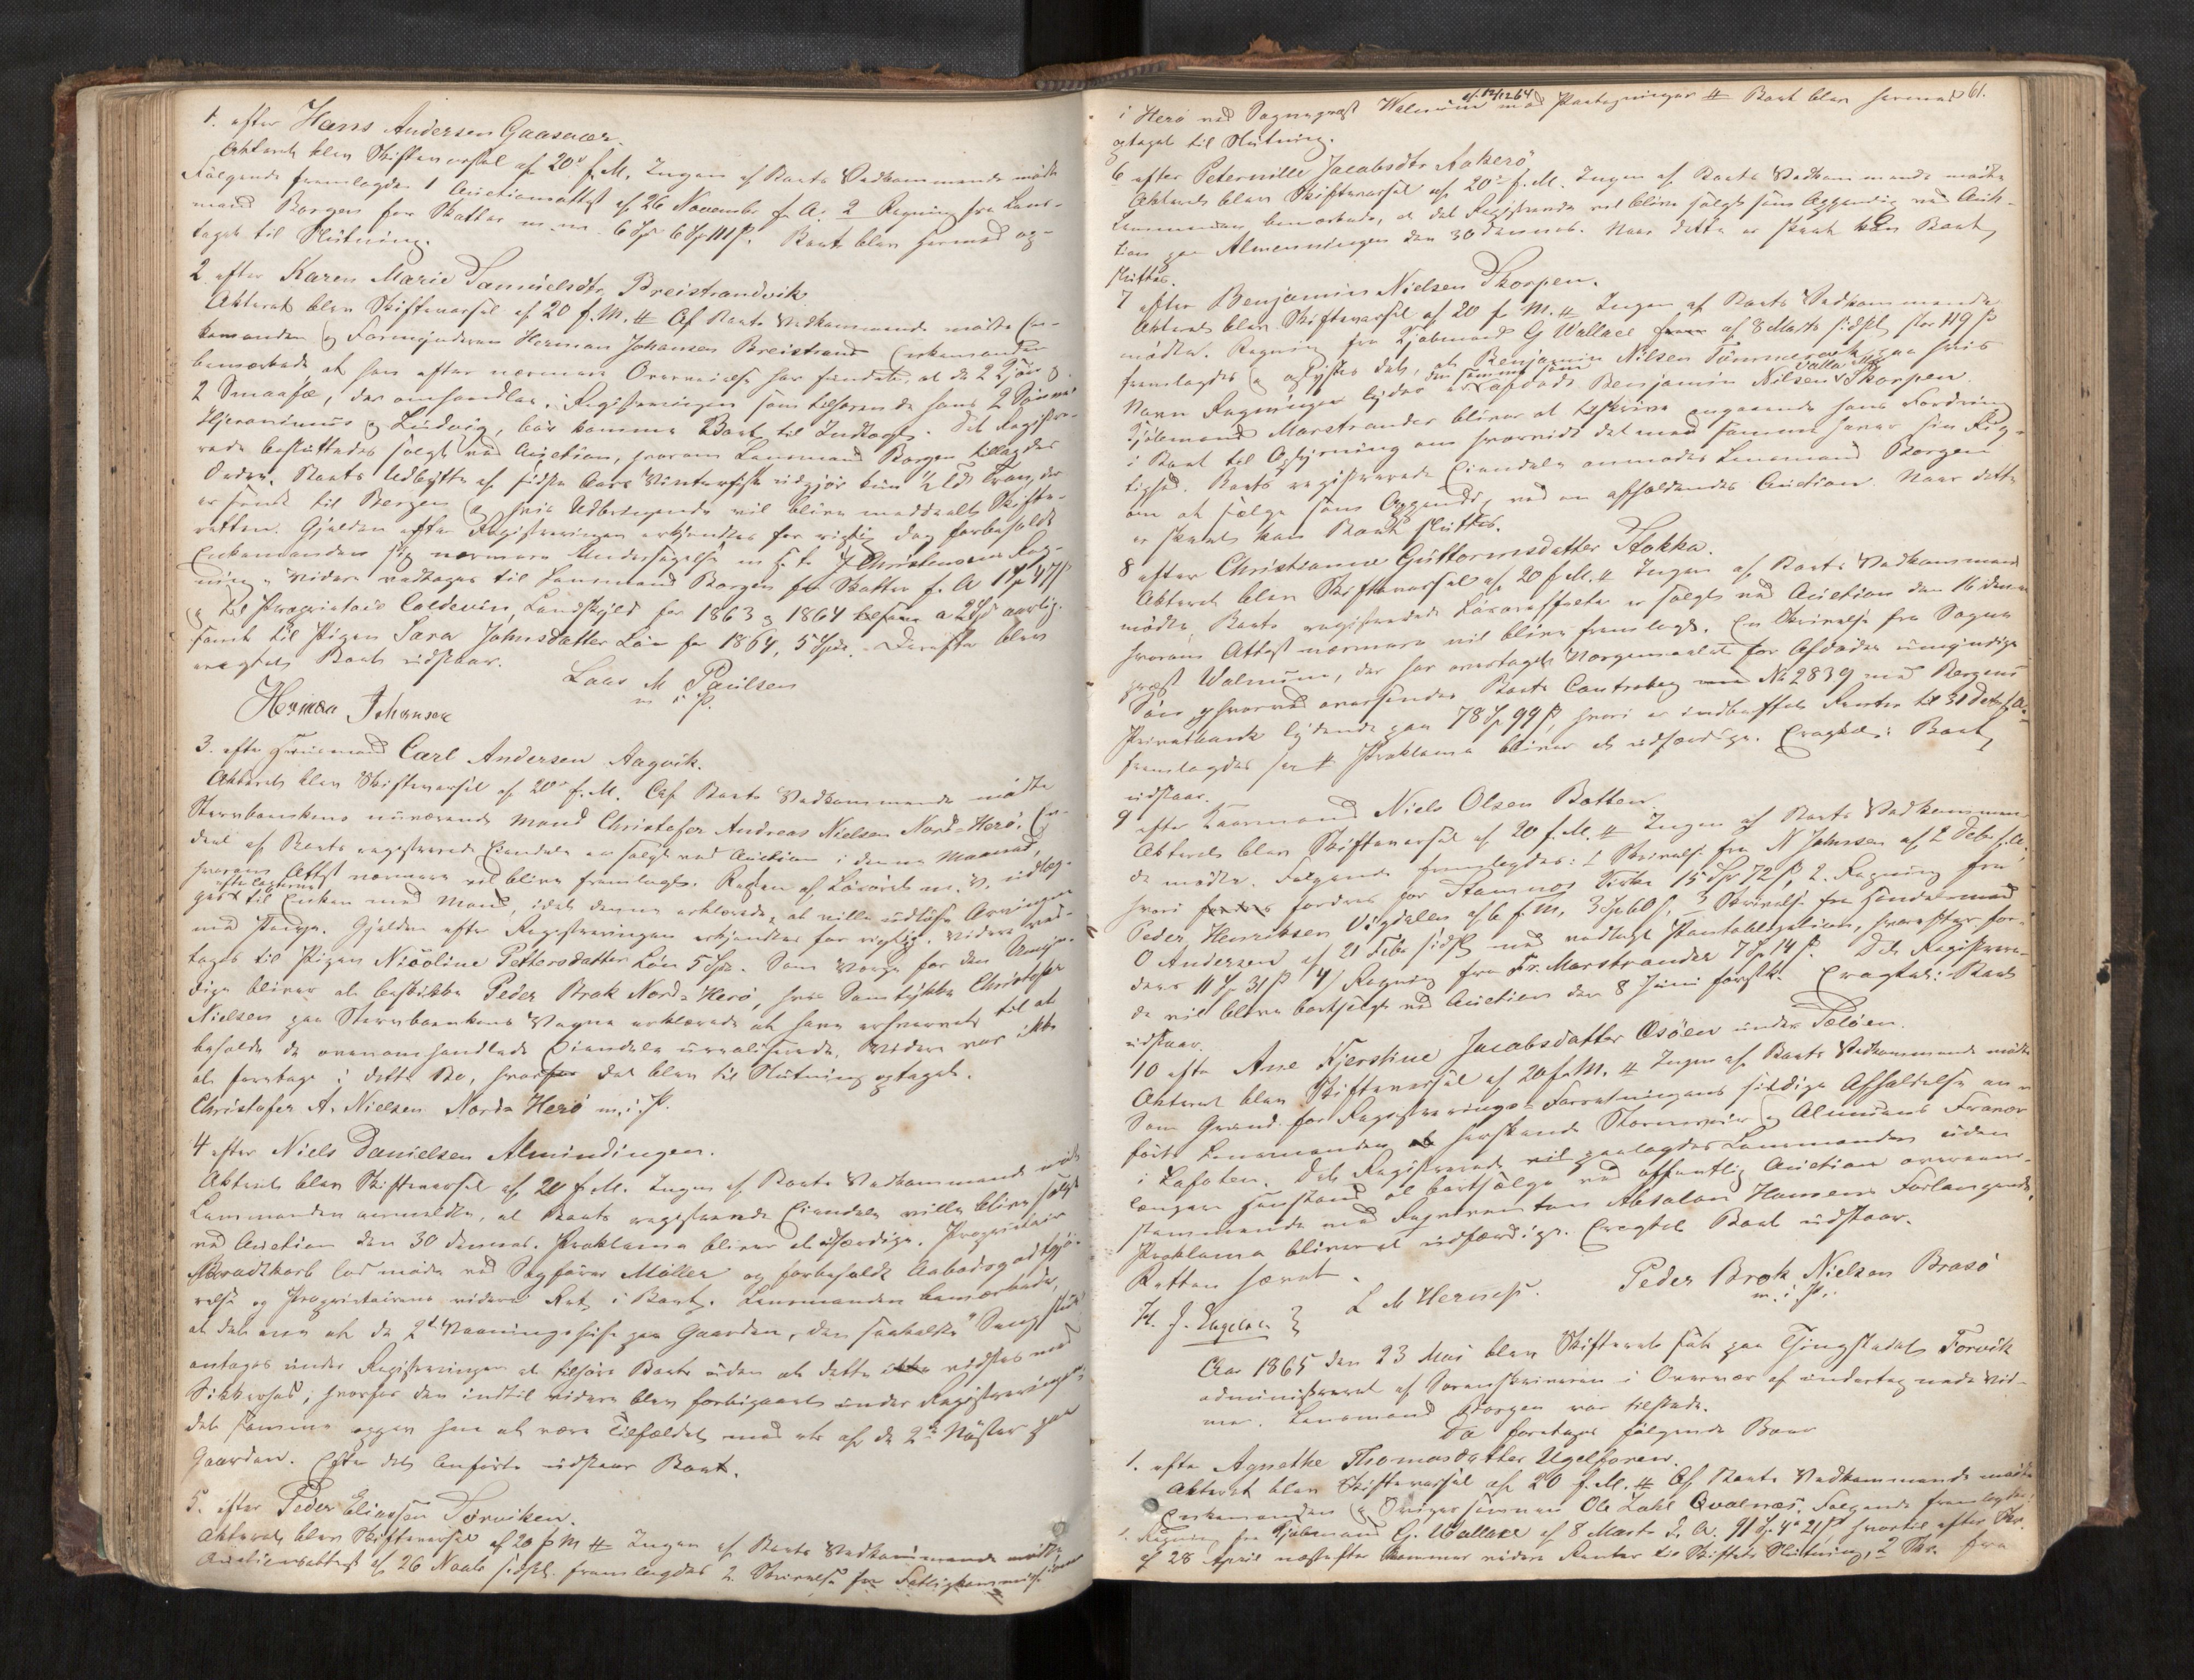 1. efter Hans Andersen Gaasvær.
Akteret blev Skiftevarsel af 20de f. M. Ingen af Boets Vedkommende mødte
Følgende fremlagdes 1 Auctionsattest af 26 November f. A. 2 Regning fra Lens-
mand Borgen for Skatter m. m. Boet blev hermed op-
taget til Slutning.
2. efter Karen Marie Samuelsdtr Breistrandvik
Akteret blev Skiftevarsel af 20 f. M. # Af Boets Vedkommende mødte En-
kemanden og Formynderen Herman Johansen Breistrand Enkemanden
bemærkede, at han efter nærmere Overveielse har fundet, at de 2 Kjør og
2 Smaafæ, der omhandles i Registreringen som tilhørende hans 2 Sønner
Hjeronimus og Ludvig, bør komme Boet til Indtægt. Det Registre-
rede besluttedes solgt ved Auction, hvorom Lensmand Borgen tillagdes
Ordre. Boets Udbytte af sidste Aars Vinterfiske udgjør kun ½ Td Tran, der
er sendt til Bergen og hvis Udbringende vil blive meddeelt Skifte-
retten. Gjælden efter Registreringen erkjendtes for rigtig dog forbeholdt
Enkemanden sig nærmere Undersøgelse m. H. t. J Christensens Reg-
ning. Videre vedtoges til Lensmand Borgen for Skatter f. A 1 47ß
og til Proprietair Coldevin, Landskyld for 1863 og 1864 a 2 Spd aarlig.
samt til Pigen Sara Johnsdatter Løn for 1864, 5 Spd. Derefter blev
eragtet Boet udstaar.
Laas M Paulsen
Herman Johansen m. i. P.
3. efter Huusmand Carl Andersen Aagvik.
Akteret blev Skiftevarsel af 20de f. M. Af Boets Vedkommende mødte
Stervboenkens nuværende Mand Christofer Andreas Nielsen Nord-Herø. En-
deel af Boets registrerede Eiendele er solgt ved Auction i denne Maaned,
hvorom Attest nærmere vil blive fremlagt. Resten af Løsøret m. v. udlæg-
ges til Enken med Mand, idet denne erklærede, at ville udløse Arvingen
med Penge. Gjælden efter Registreringen erkjendtes for rigtig. Videre ved-
toges til Pigen Nicoline Pettersdatter Løn 5 Spd. Som Værge for den Umyn-
dige bliver at beskikke Peder Brok Nord-Herø, hvis Samtykke Christofer
Nielsen paa Stervboenkens Vegne erklærede at have erhvervet til at
beholde de ovenomhandlede Eiendele urealiserede. Videre var ikke
at foretage i dette Bo, hvorfor det blev til Slutning optaget.
Christofer A. Nielsen Nord-Herø m. i. P.
4 efter Niels Danielsen Almindingen.
Akteret blev Skiftevarsel af 20 f. M. Ingen af Boets Vedkommende mødte
Lensmanden anmeldte, at Boets registrerede Eiendele ville blive solgt
ved Auction den 30 dennes. Proklama bliver at udfærdige. Proprietair
Brodtkorb lod møde ved Sagfører Møller og forbeholdt Aabodsgodtgjø-
relse og Proprietairens videre Ret i Boet. Lensmanden bemærkede,
at det ene af de 2de Vaaningshuse paa Gaarden, den saakaldte
antages under Registreringen at tilhøre Boet uden at dette vidstes med
Sikkerhed, hvorfor den indtil videre blev forbigaaet under Registreringen,
det samme opgav han at være Tilfældet med et af de 2de Nøster paa
Gaarden. Efter det Anførte udstaar Boet.
5. efter Peder Eliassen Sørviken.
Akteret blev Skiftevarsel af 20 f. M # Ingen af Boets Vedkommende mødte
Auctionsattest af 26 Novb sidstl. fremlagdes 2. Skrivelse fra Fattigkommissionen
61.
i Herø ved Sognepræst Walnum af 12/12 64 med Paategninger # Boet blev hermed
optaget til Slutning.
6 efter Peternille Jacobsdtr Aakerø
Akteret blev Skiftevarsel af 20de f. M. Ingen af Boets Vedkommende mødte
Lensmanden bemærkede, at det Registrerede vil blive solgt som Oggendig ved Auk-
tion paa Almenningen den 30 dennes. Naar dette er skeet kan Boet
sluttes.
7 efter Benjamin Nielsen Skorpen.
Akteret blev Skiftevarsel af 20 f. M. # Ingen af Boets Vedkommende
mødte. Regning fra Kjøbmand G Wallace af 8 Marts sidstl. stor 119 ß
fremlagdes og oplystes det, at Benjamin Nilsen Tømmervik paa hvis
Navn Regningen lyder er den samme som afdøde Benjamin Nilsen Skorpen.
Kjøbmand Marstrander bliver at tilskrive angaaende hans Fordring
i Boet til Oplysning om hvorvidt det med samme haver sin Rig-
tighed. Boets registrerede Eiendele anmodes Lensmand Borgen
om at sælge som Oggendig ved en afholdendes Auction. Naar dette
er skeet kan Boet sluttes.
8 efter Christianne Guttormsdatter Stokka.
Akteret blev Skiftevarsel af 20 f. M. # Ingen af Boets Vedkommende
mødte. Boets registrerede Løsøreeffecter er solgt ved Auction den 16 dennes
hvorom Attest nærmere vil blive fremlagt. En Skrivelse fra Sogne-
præst Walnum, der har overtaget Værgemaalet for Afdødes umyndige
Søn og hvorved oversendes Boets Contrabog No 2839 med Bergens
Privatbank lydende paa 78 99 ß, hvori er indbefattet Renter til 31 Decbr f. A.
fremlagdes # Proklama bliver at udfærdige. Eragtet: Boet
udstaar.
9 efter Huusmand Niels Olsen Botten.
Akteret blev Skiftevarsel af 20 f. M. # Ingen af Boets Vedkommen-
de mødte. Følgende fremlagdes: 1 Skrivelse fra N Johnsen af 2 Febr f. A.
hvori fordres for Stamnes Kirke 15 Spd 72 ß, 2. Regning fra
Peder Henriksen Vigdalen af 6 f. M. 3 Sp 60 ß, 3 Skrivelse fra Handelsmand
O Andersen af 21 Febr sidstl. med vedlagt Pantobligation, hvorefter for-
dres 11 Sp 31 ß 4/ Regning fra Fr. Marstrander 7 Sp 14 ß. Det Registrere-
de vil blive bortsolgt ved Auction den 8 Juni førstk. Eragtet: Boet
udstaar.
10 efter Ane Kjerstine Jacobsdatter Osøen under Teløen.
Akteret blev Skiftevarsel af 20 f. M. # Ingen af Boets Vedkommende mødte
Som Grund for Registrerings-Forretningens sildige Afholdelse an-
førte Lensmanden herskende Stormveir og Almuens Fravær
i Lofoten. Det Registrerede paalagdes Lensmanden uden
længere Henstand at bortsælge ved offentlig Auction overeens-
stemmende med Repræsentant Absalon Hansens Forlangende.
Proklama bliver at udfærdige. Eragtet Boet udstaar.
Retten hævet.
L M Hernes. Peder Brok Nielsen Brasø
m. i. P.
Aar 1865 den 23 Mai blev Skifteret sat paa Thingstedet Forvik
administreret af Sorenskriveren i Overvær af undertegnede Vid-
ner. Lensmand Borgen var tilstede.
Da foretoges følgende Boer
1. efter Agnethe Thomasdatter Ugelforen.
Akteret blev Skiftevarsel af 20 f. M. # Af Boets Vedkommende mødte
Enkemanden og Ole Zahl Qvalnæs. Følgende fremlagdes:
1. Regning fra Kjøbmand G. Wallace af 8 Marts d. A. 91 Sp 4 21 ß hvortil efter Skr.
af 28 April næstefter kommer videre Renter til Skiftets Slutning, 2 Skr. fra